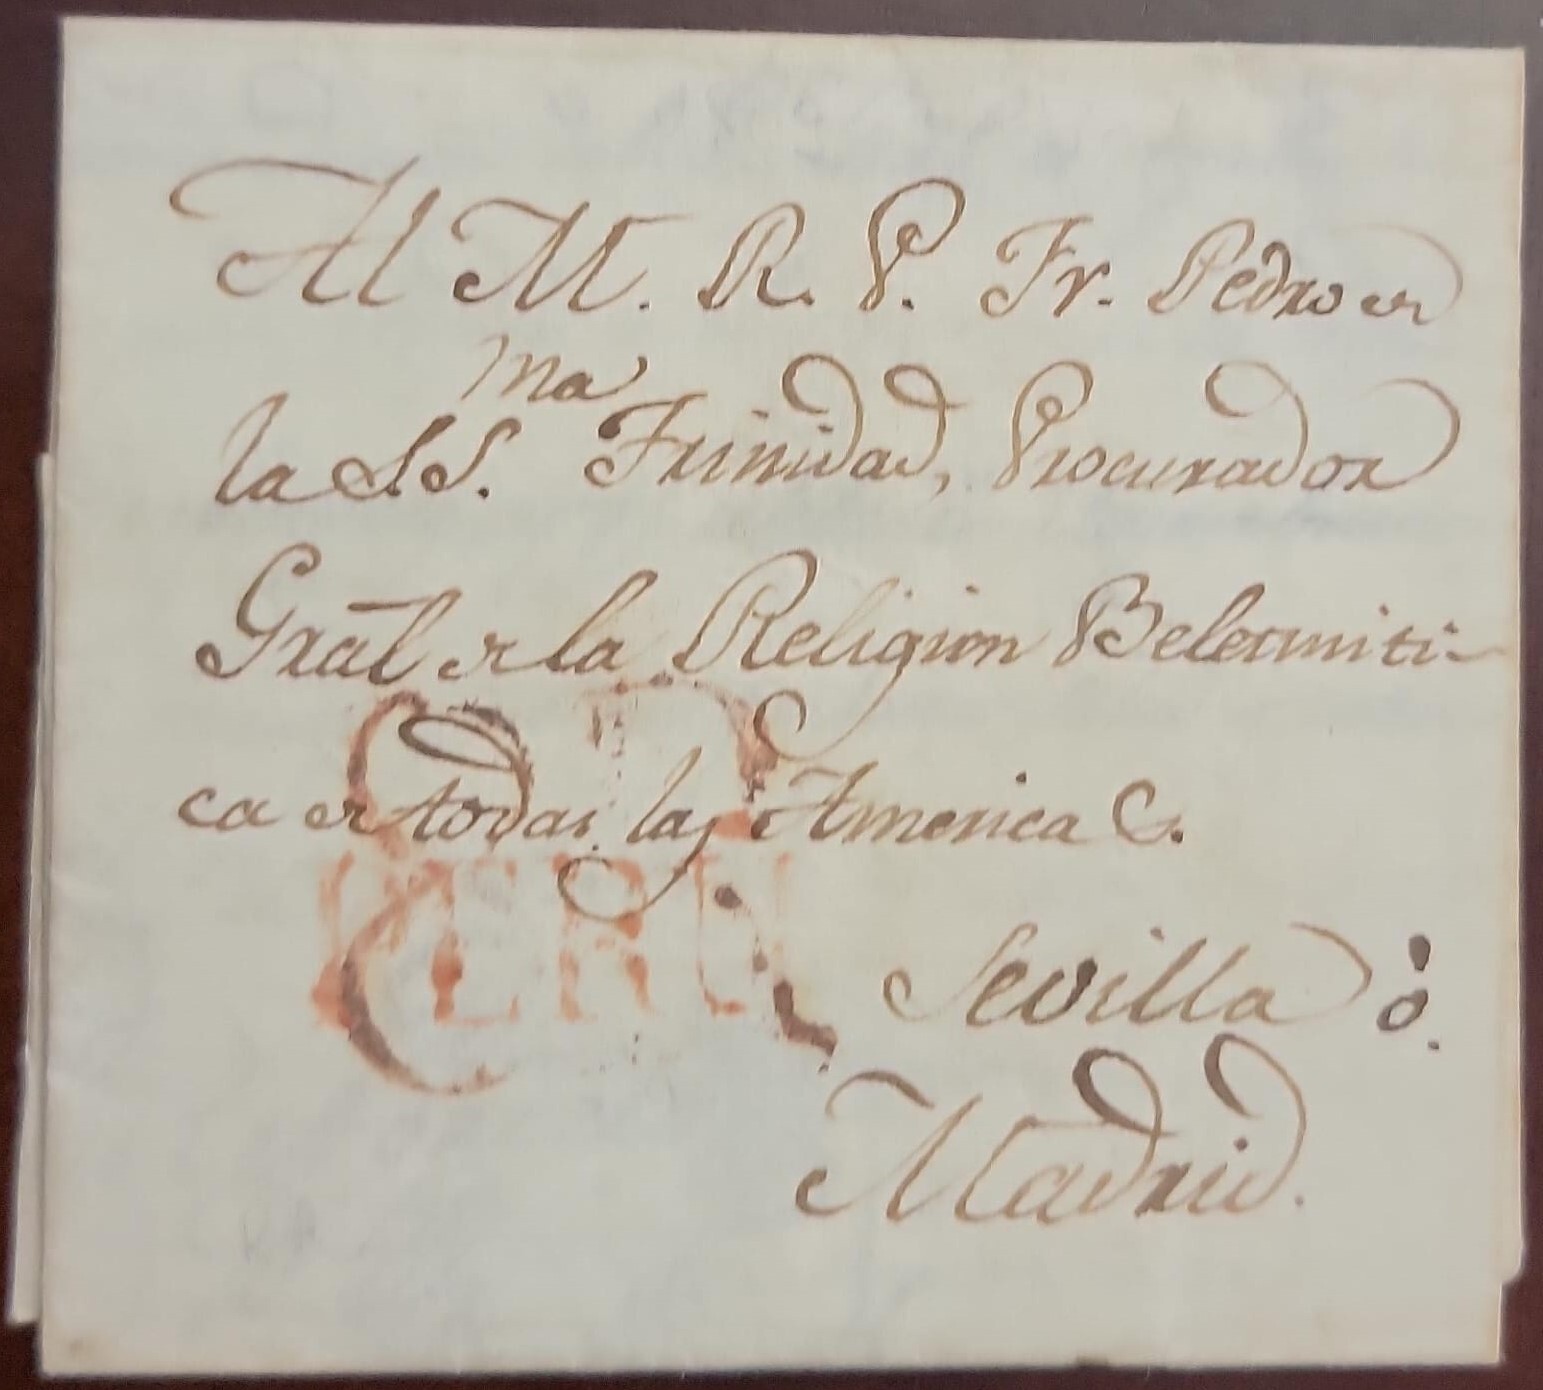 Al M. R. P. Fr. Pedro de
la SS.ma Trinidad, Procurador
Gral de la Religion Beletmiti-
ca de todas las America &.
Sevilla ó.
Madrid.